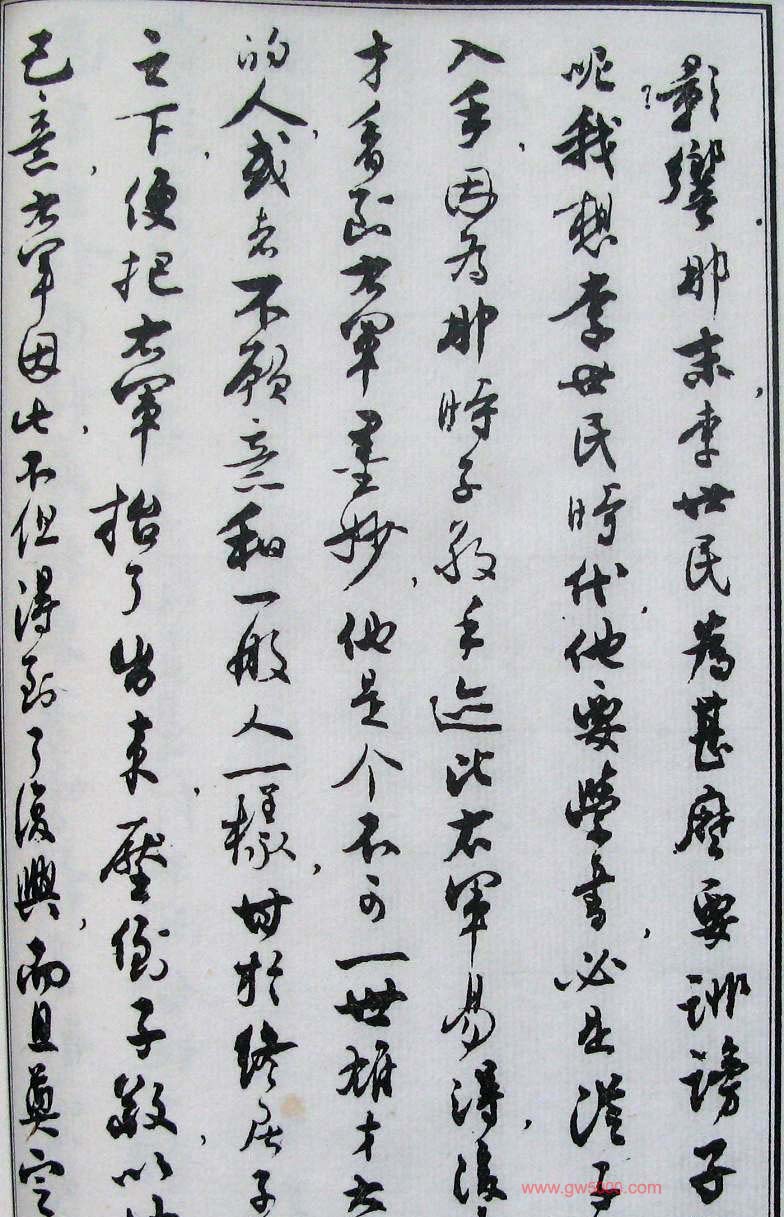 影響，那末李世民為甚麼要誹謗子
呢？我想李世民時代，他要學書，必是從子
入手，因為那時子敬手迹比右軍易得，後
才看到右軍墨妙，他是个不可一世雄才大
的人，或者不願意和一般人一樣，甘於終居子
之下，便把右軍抬了出來，壓倒子敬，以
己意，右軍因此，不但得到了復興，而且奠定
www.gw5000.com